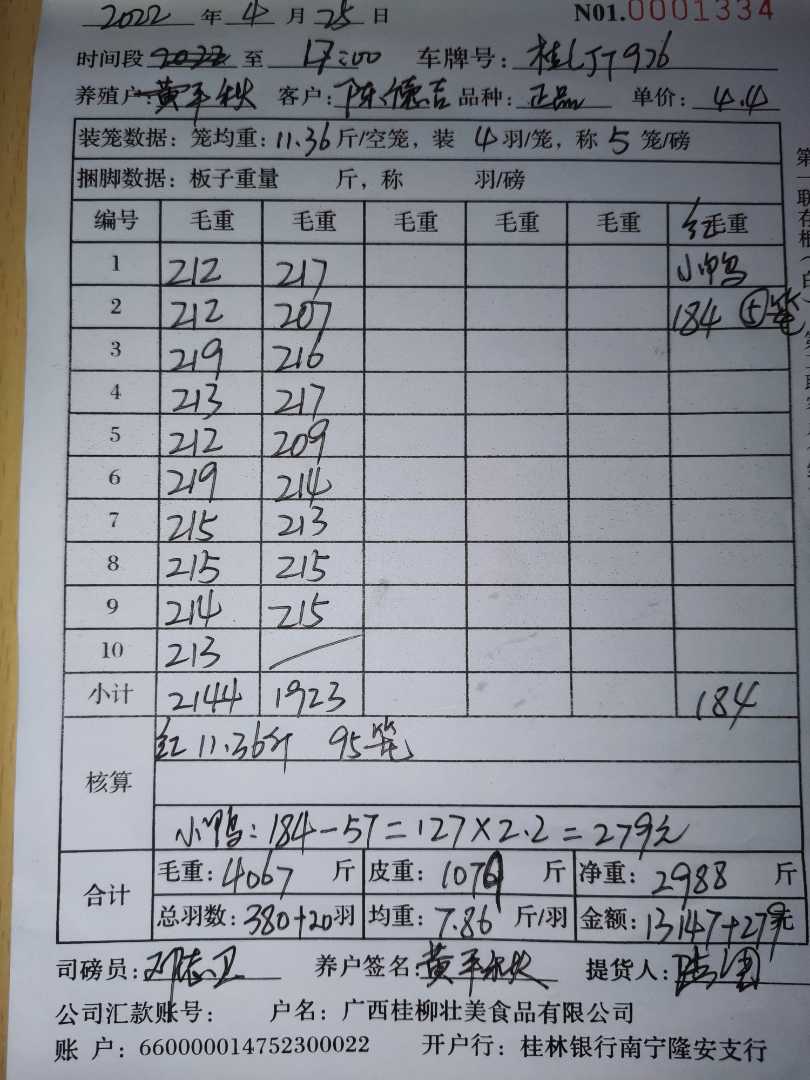 2022 年 4 月 25 日 N01.0001334
时间段 2022 至 17:00 车牌号: 桂LJT926
养殖户: 黄平秋 客户: 陈德吉 品种: 正品 单价: 4.4
装笼数据: 笼均重: 11.36 斤/空笼, 装 4 羽/笼, 称 5 笼/磅
捆脚数据: 板子重量 斤, 称 羽/磅
编号 毛重 毛重 毛重 毛重 毛重 红毛重
1 212 217 小鸭
2 212 207 184 ⑤笼
3 219 216
4 213 217
5 212 209
6 219 214
7 215 213
8 215 215
9 214 215
10 213
小计 2144 1923 184
红 11.36斤 95笼
核算
小鸭: 184-57=127×2.2=279元
合计
毛重: 4067 斤 皮重: 1079 斤 净重: 2988 斤
总羽数: 380+20羽 均重: 7.86 斤/羽 金额: 13147+279元
司磅员: 养户签名: 黄平秋 提货人:
公司汇款账号: 户名: 广西桂柳壮美食品有限公司
账 户: 660000014752300022 开户行: 桂林银行南宁隆安支行
第一联存根(白)